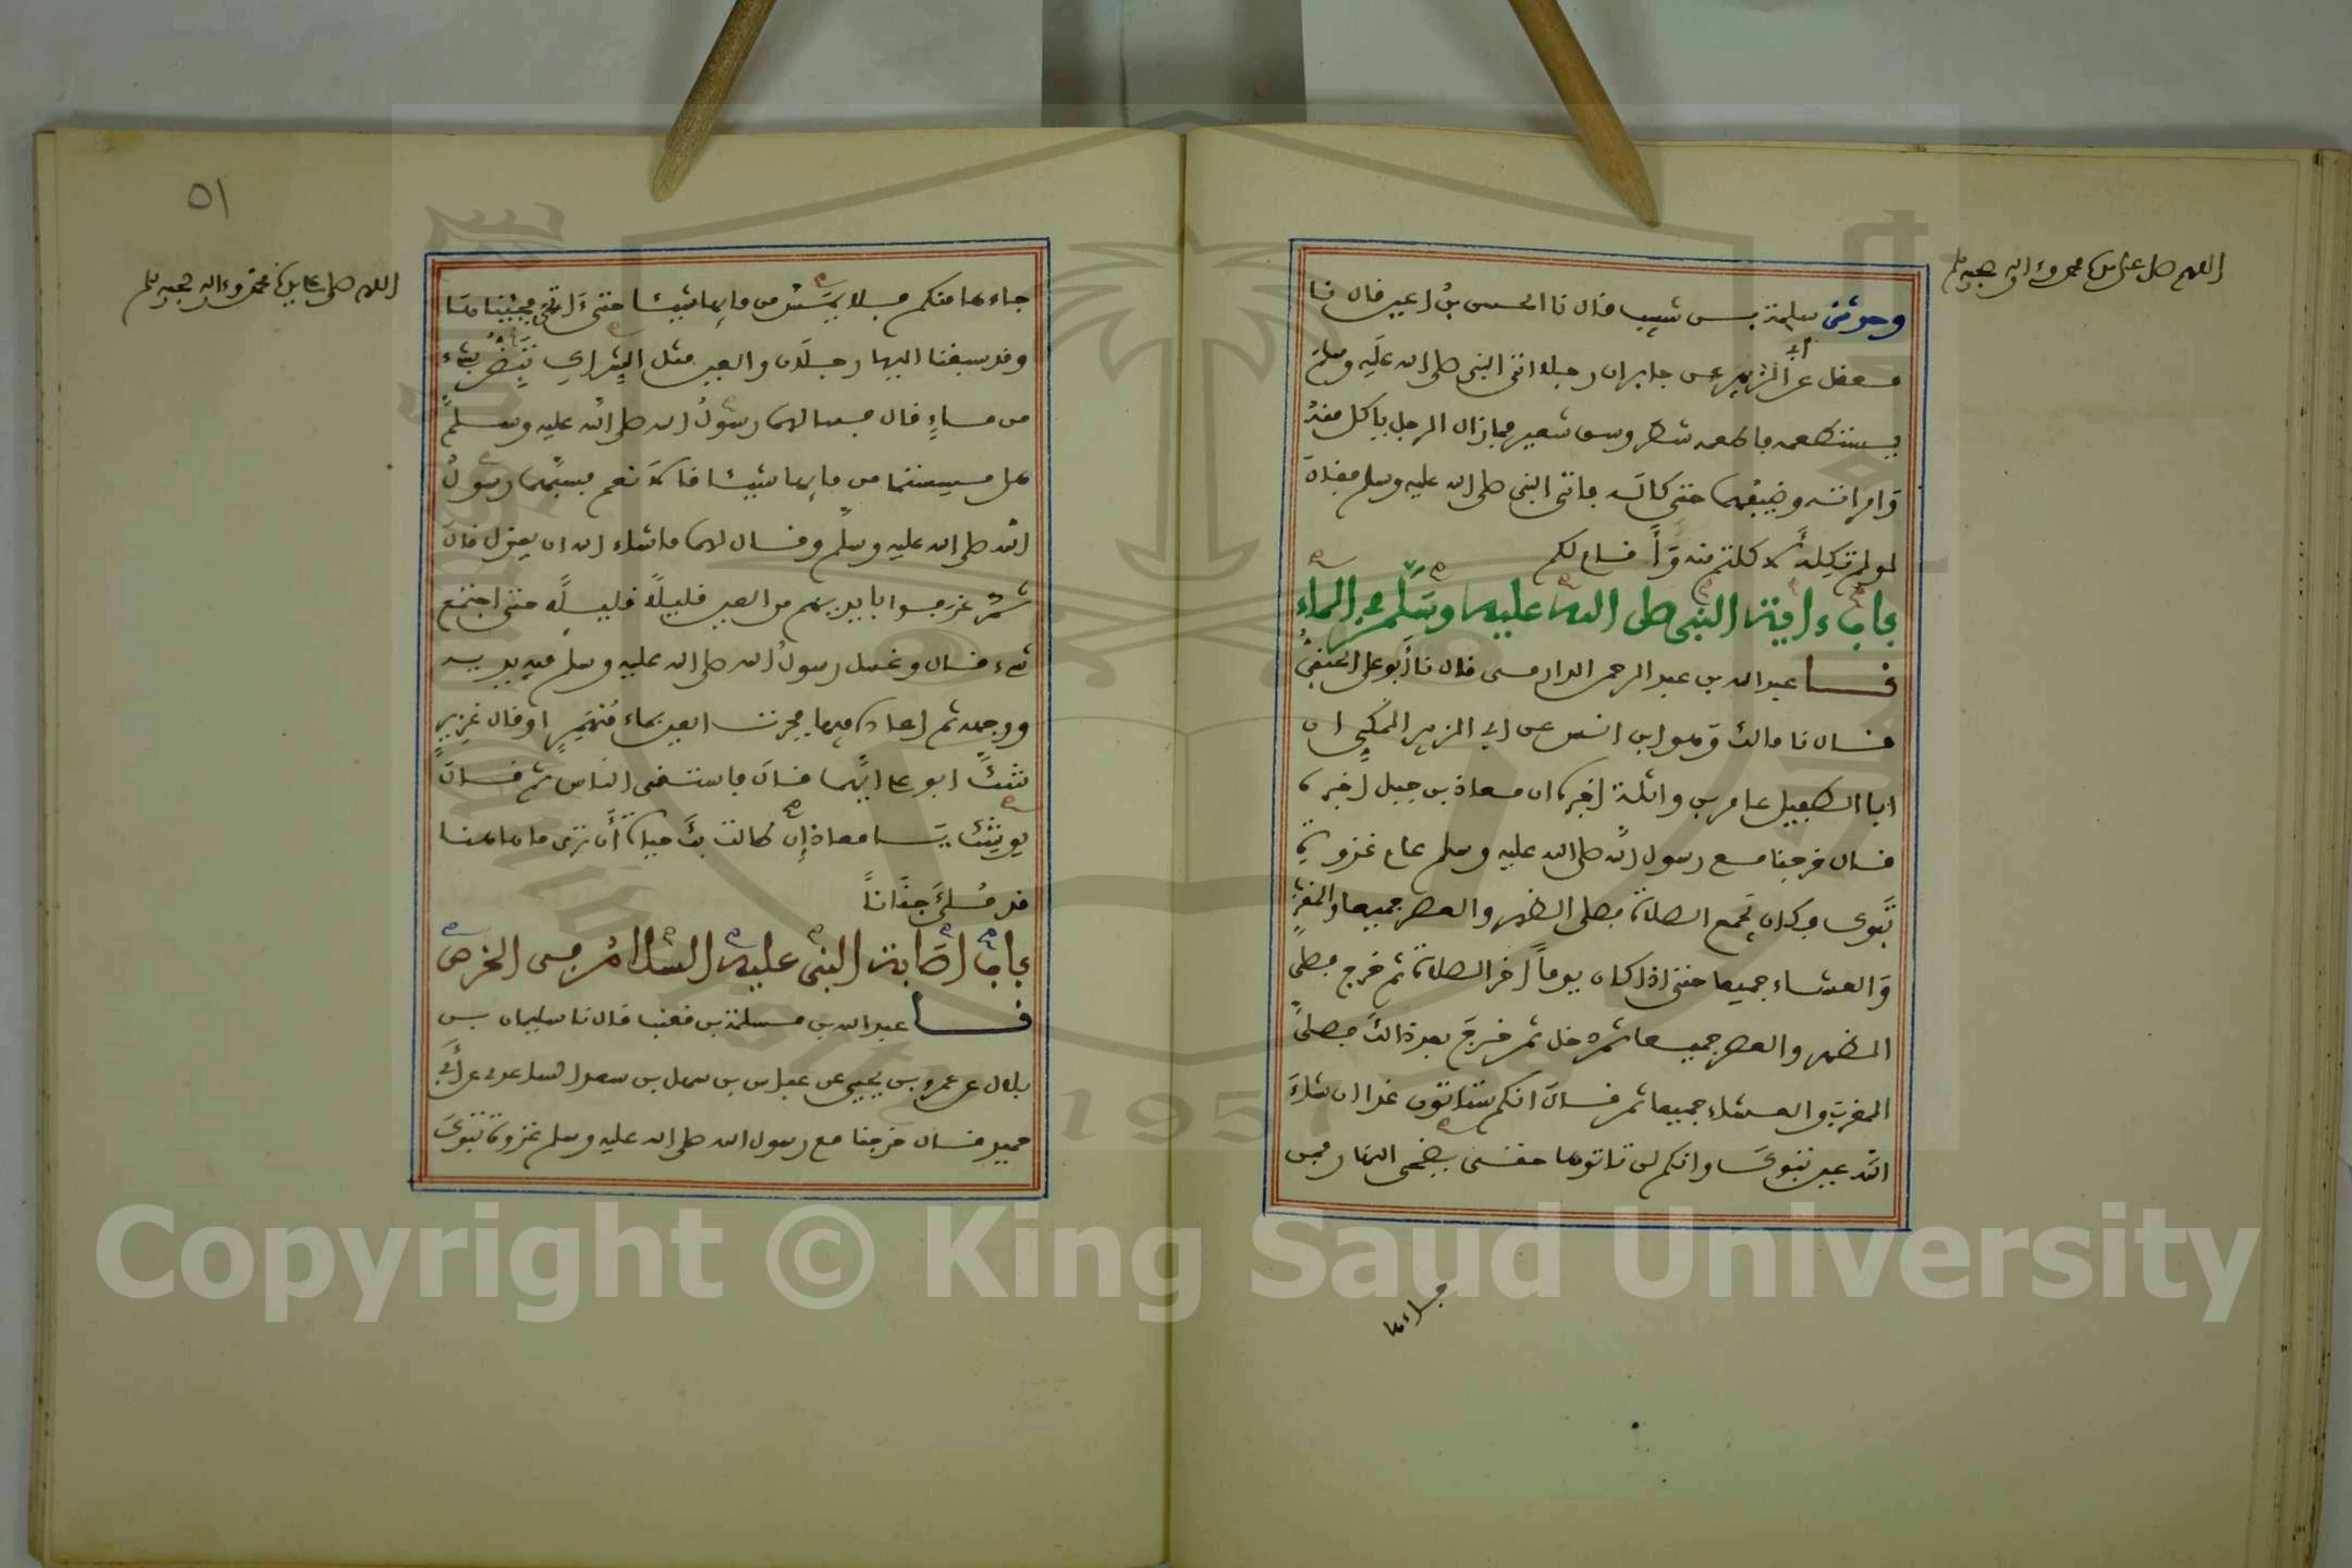 اللهم صل على سيدنا محمد وءاله وصحبه وسلم
وحدثني سلمة بن شبيب قال نا الحسن بن اعين قال نا
معقل عن أبي الزبير عن جابر ان رجلا اتى النبي صلى الله عليه وسلم
يستطعمه فاطعمه شطر وسق شعير فما زال الرجل ياكل منه
وامراته وضيفهما حتى كاله فاتى النبي صلى الله عليه وسلم فقال
لو لم تكله لأكلتم منه ولقام لكم
باب بركة النبي صلى الله عليه وسلم في الماء
نا عبد الله بن عبد الرحمن الدارمي قال نا أبو علي الحنفي
قال نا مالك وهو ابن انس عن ابي الزبير المكي ان
ابا الطفيل عامر بن واثلة اخبره ان معاذ بن جبل اخبره
قال خرجنا مع رسول الله صلى الله عليه وسلم عام غزوة
تبوك فكان يجمع الصلاة فصلى الظهر والعصر جميعا والمغرب
والعشاء جميعا حتى اذا كان يوما اخر الصلاة ثم خرج فصلى
الظهر والعصر جميعا ثم دخل ثم خرج بعد ذالك فصلى
المغرب والعشاء جميعا ثم قال انكم ستاتون غدا ان شاء
الله عين تبوك وانكم لن تاتوها حتى يضحى النهار فمن
جاءها
٥١
اللهم صل على سيدنا محمد وءاله وصحبه وسلم
جاءها منكم فلا يمس من مايها شيئا حتى ءاتي فجئناها
وقد سبقنا اليها رجلان والعين مثل الشراك تبض بشيء
من ماء قال فسالهما رسول الله صلى الله عليه وسلم
هل مسستما من مايها شيئا قالا نعم فسبهما رسول
الله صلى الله عليه وسلم وقال لهما ما شاء الله ان يقول قال
ثم غرفوا بايديهم من العين قليلا قليلا حتى اجتمع
شيء قال وغسل رسول الله صلى الله عليه وسلم فيه يديه
ووجهه ثم اعاده فيها فجرت العين بماء منهمر او قال غزير
شك ابو علي ايهما قال فاستقى الناس ثم قال
يوشك يا معاذ إن طالت بك حياة أن ترى ما هاهنا
قد ملئ جنانا
باب إصابة النبي عليه السلام في الخرص
نا عبد الله بن مسلمة بن قعنب قال نا سليمان بن
بلال عن عمرو بن يحيى عن عباس بن سهل بن سعد الساعدي عن أبي
حميد قال خرجنا مع رسول الله صلى الله عليه وسلم غزوة تبوك
Copyright © King Saud University
1957